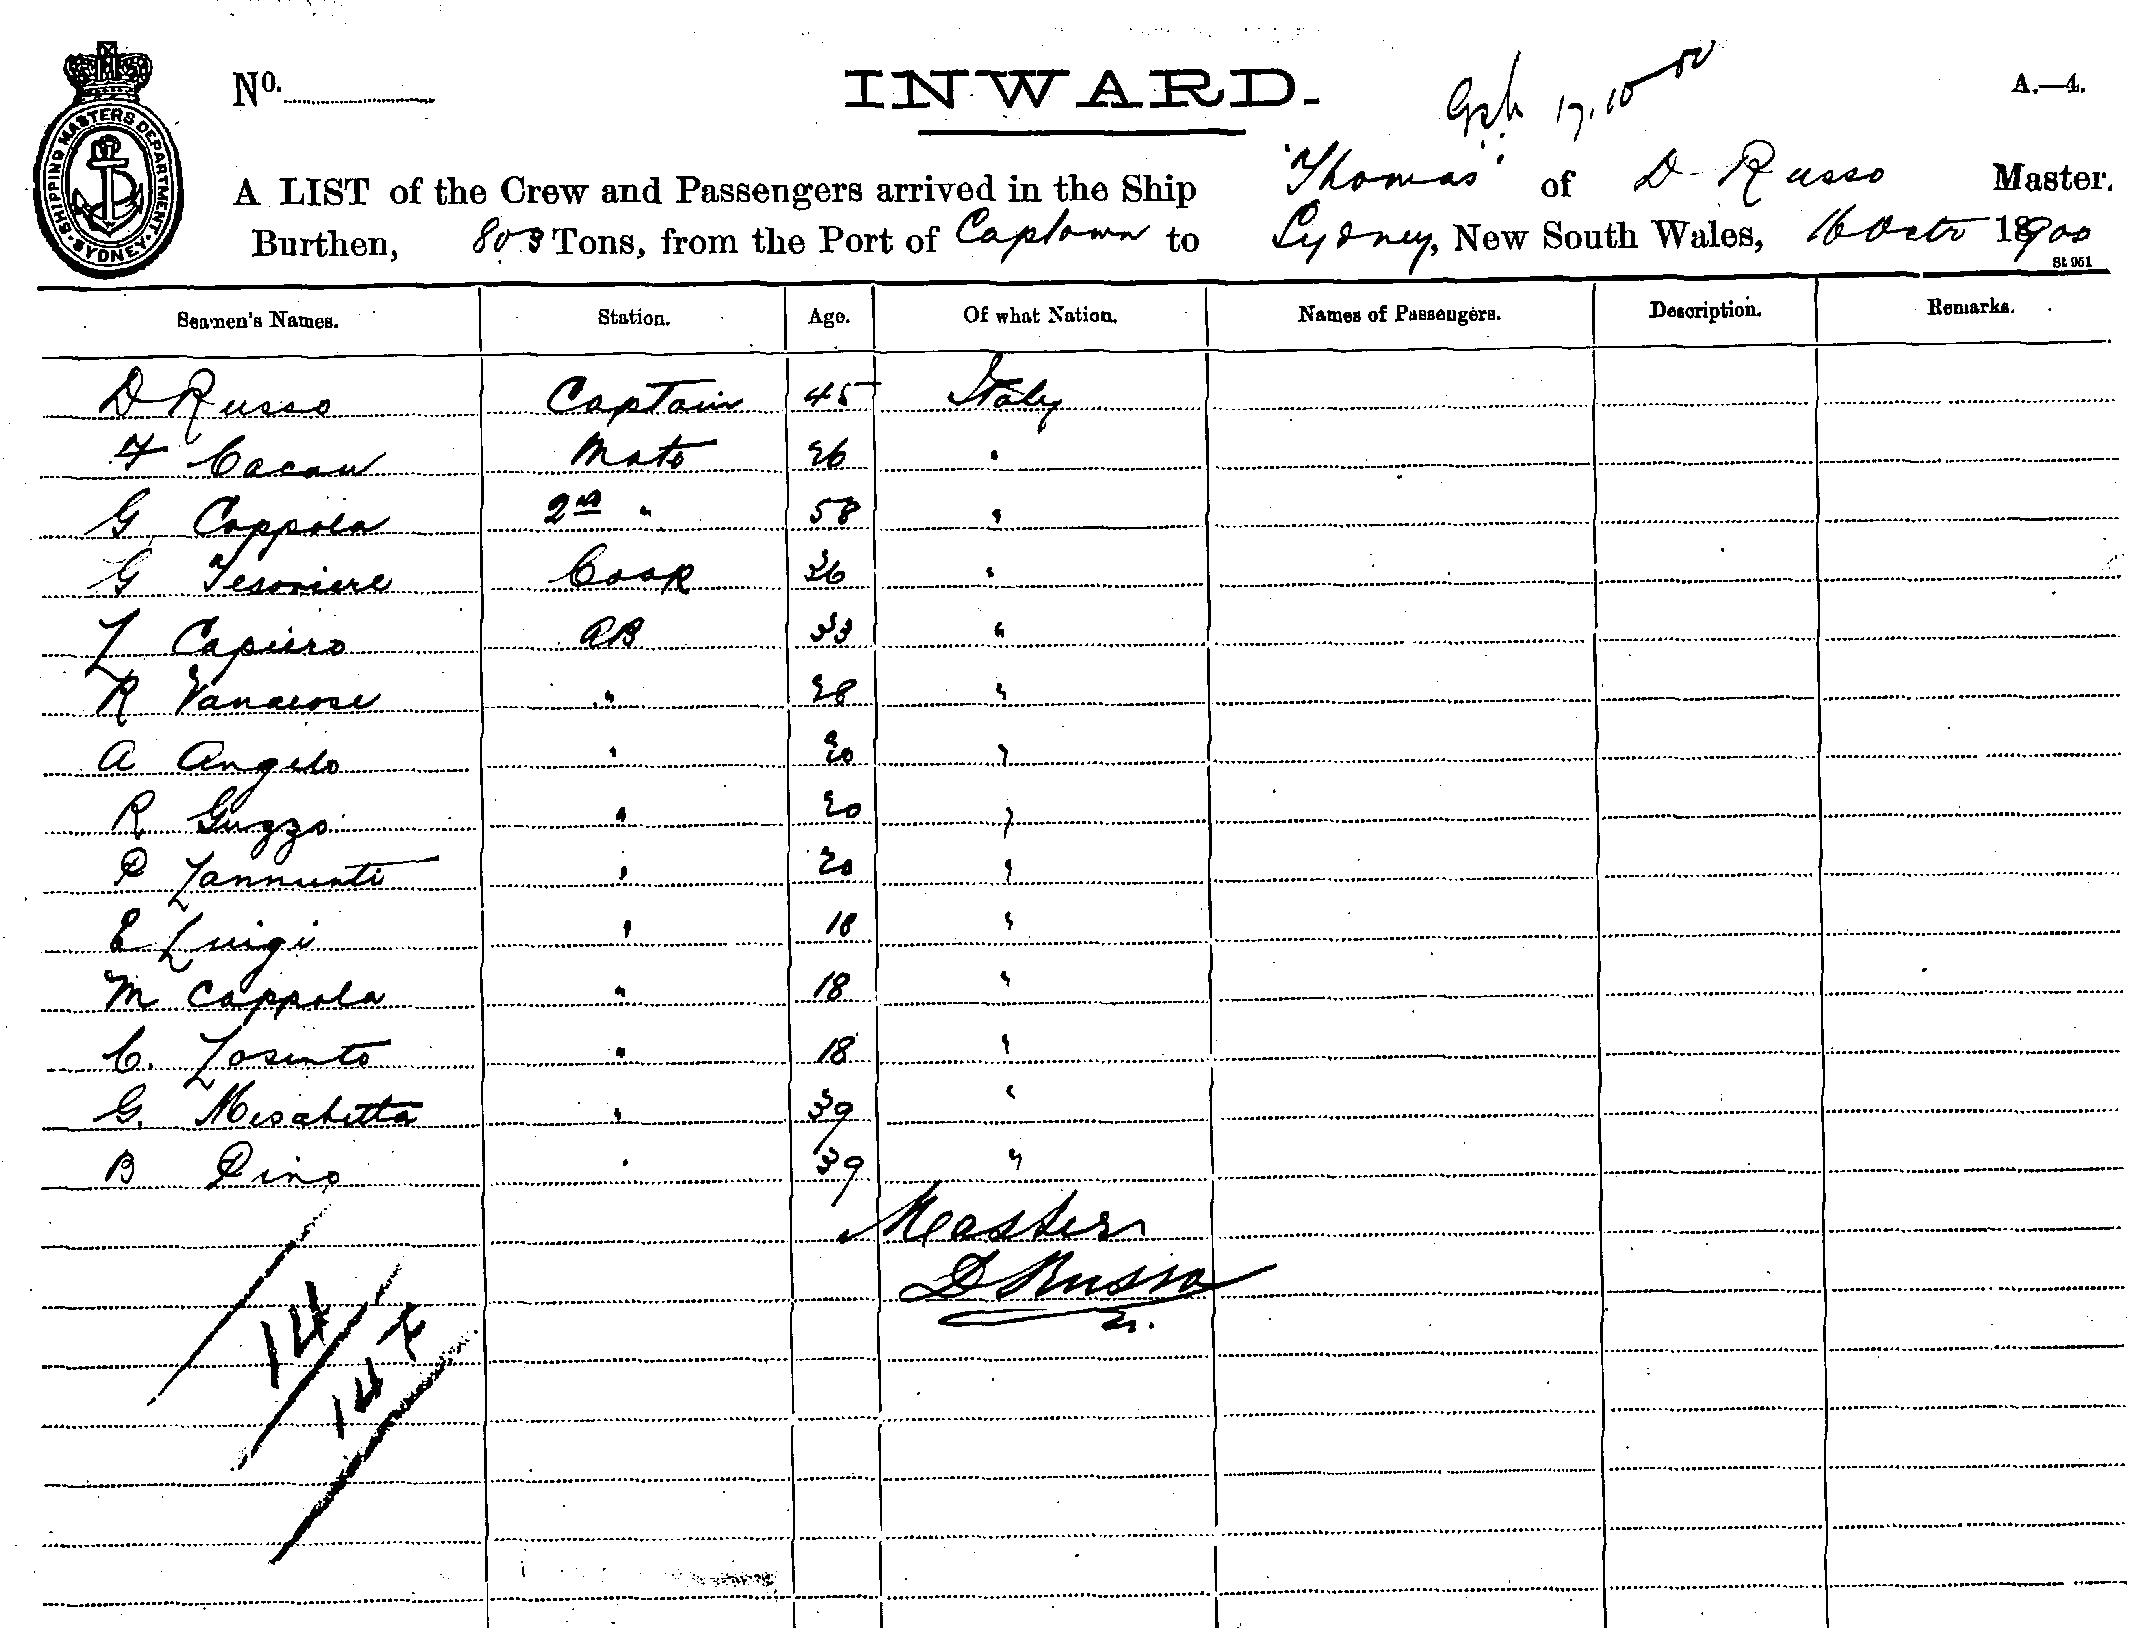 No.
INWARD.
17.10.00
A.—4.
SHIPPING MASTERS DEPARTMENT. SYDNEY.
A LIST of the Crew and Passengers arrived in the Ship "Thomas" of D Russo Master.
Burthen, 803 Tons, from the Port of Captown to Sydney, New South Wales, 16 Octr 1900
St 951
Seamen's Names. Station. Age. Of what Nation. Names of Passengers. Description. Remarks.
D Russo Captain 45 Italy
F Cacau Mate 26 "
G Coppola 2nd " 58 "
G Tesoriere Cook 36 "
L Capiero AB 33 "
R Vanacose " 28 "
A Angelo " 20 "
R Guzzo " 20 "
P Iannunti " 20 "
E Luigi " 18 "
M Coppola " 18 "
C. Losinto " 18 "
G. " 39 "
B Pino " 39 "
Master
D Russo
14
14